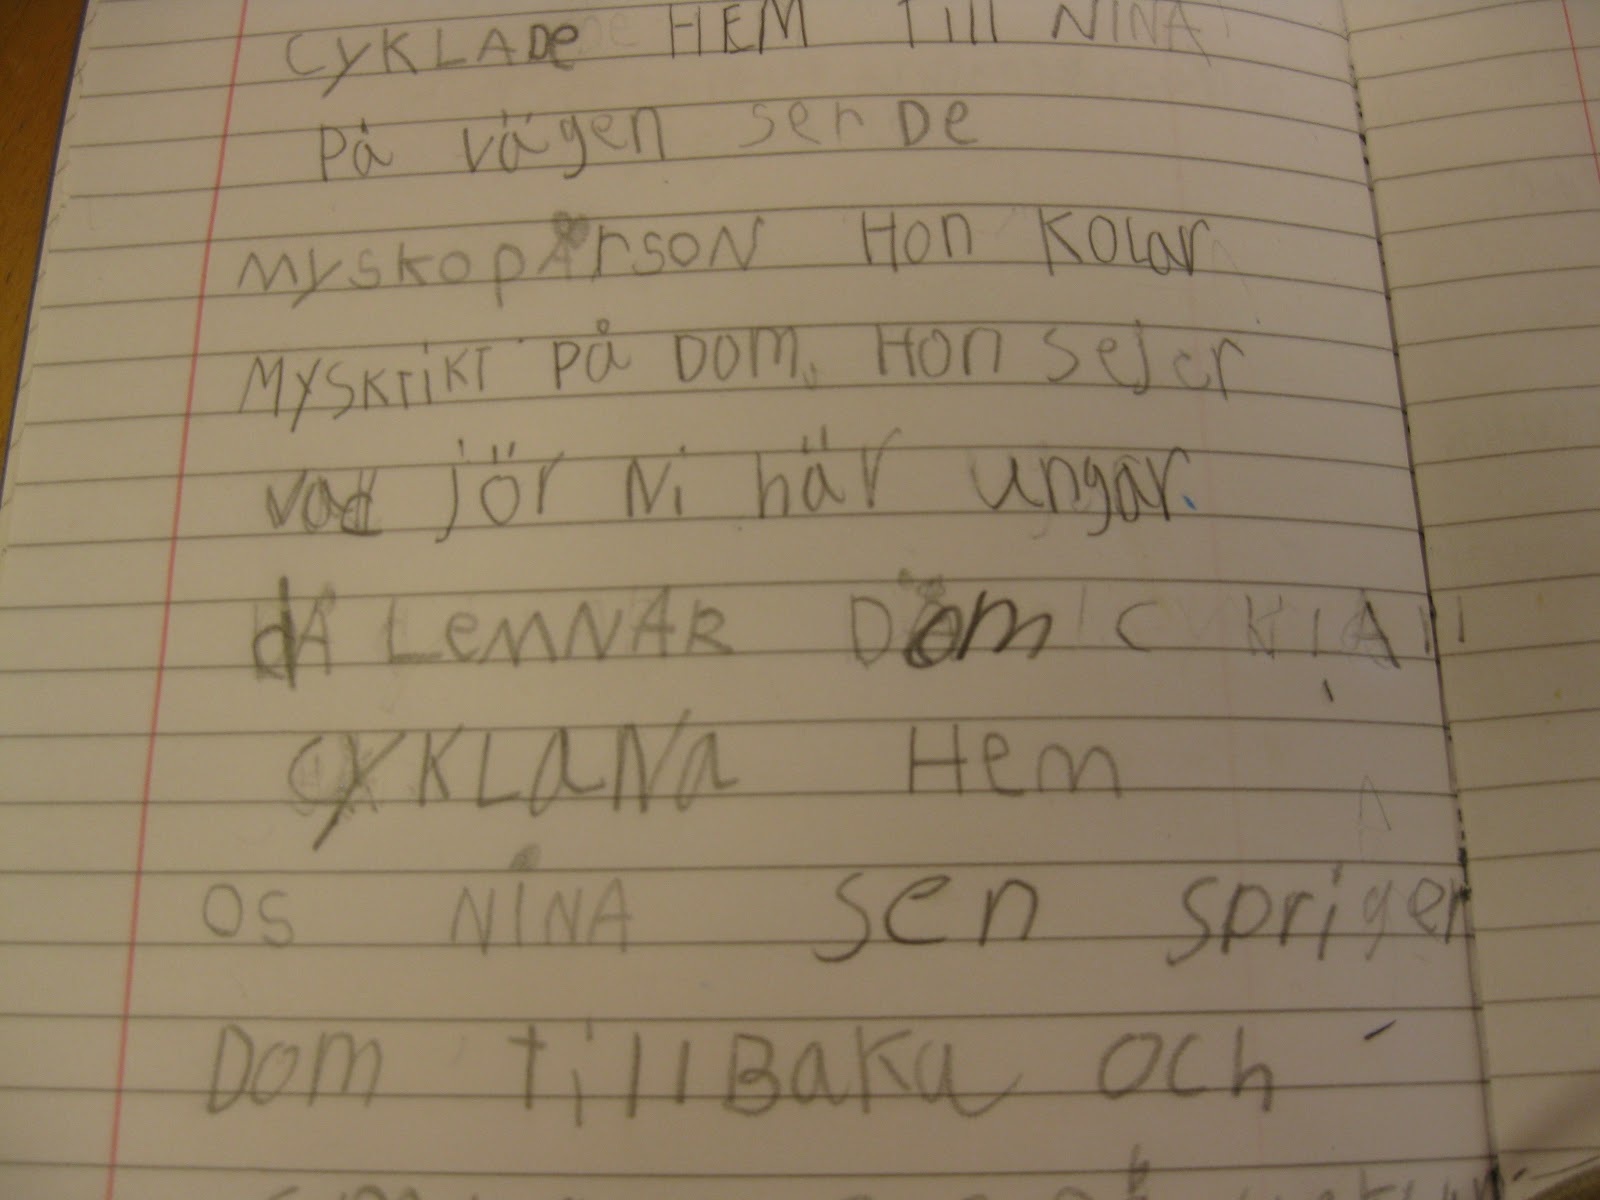 CYKLADe HEM Till NINA
På vägen ser De
MYSKOPÄrSON HON KOLar
MYSKTiKT På DOM. HON Sejer
vad jör Ni här ungar.
dÅ LeMNAR Dom
CYKLaNa Hem
OS NINA Sen Spriger
Dom TillBaKa OCh